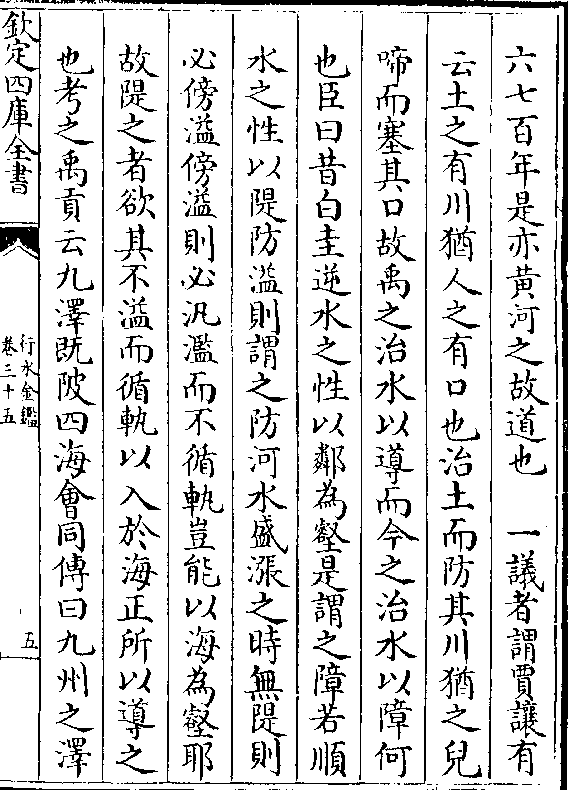 六七百年是亦黃河之故道也　一議者謂賈讓有
云土之有川猶人之有口也治土而防其川猶之兒
啼而塞其口故禹之治水以導而今之治水以障何
也臣曰昔白圭逆水之性以鄰為壑是謂之障若順
水之性以隄防溢則謂之防河水盛漲之時無隄則
必傍溢傍溢則必汎濫而不循軌豈能以海為壑耶
故隄之者欲其不溢而循軌以入於海正所以導之
也考之禹貢云九澤既陂四海會同傳曰九州之澤
欽定四庫全書
行水金鑑
卷三十五
五